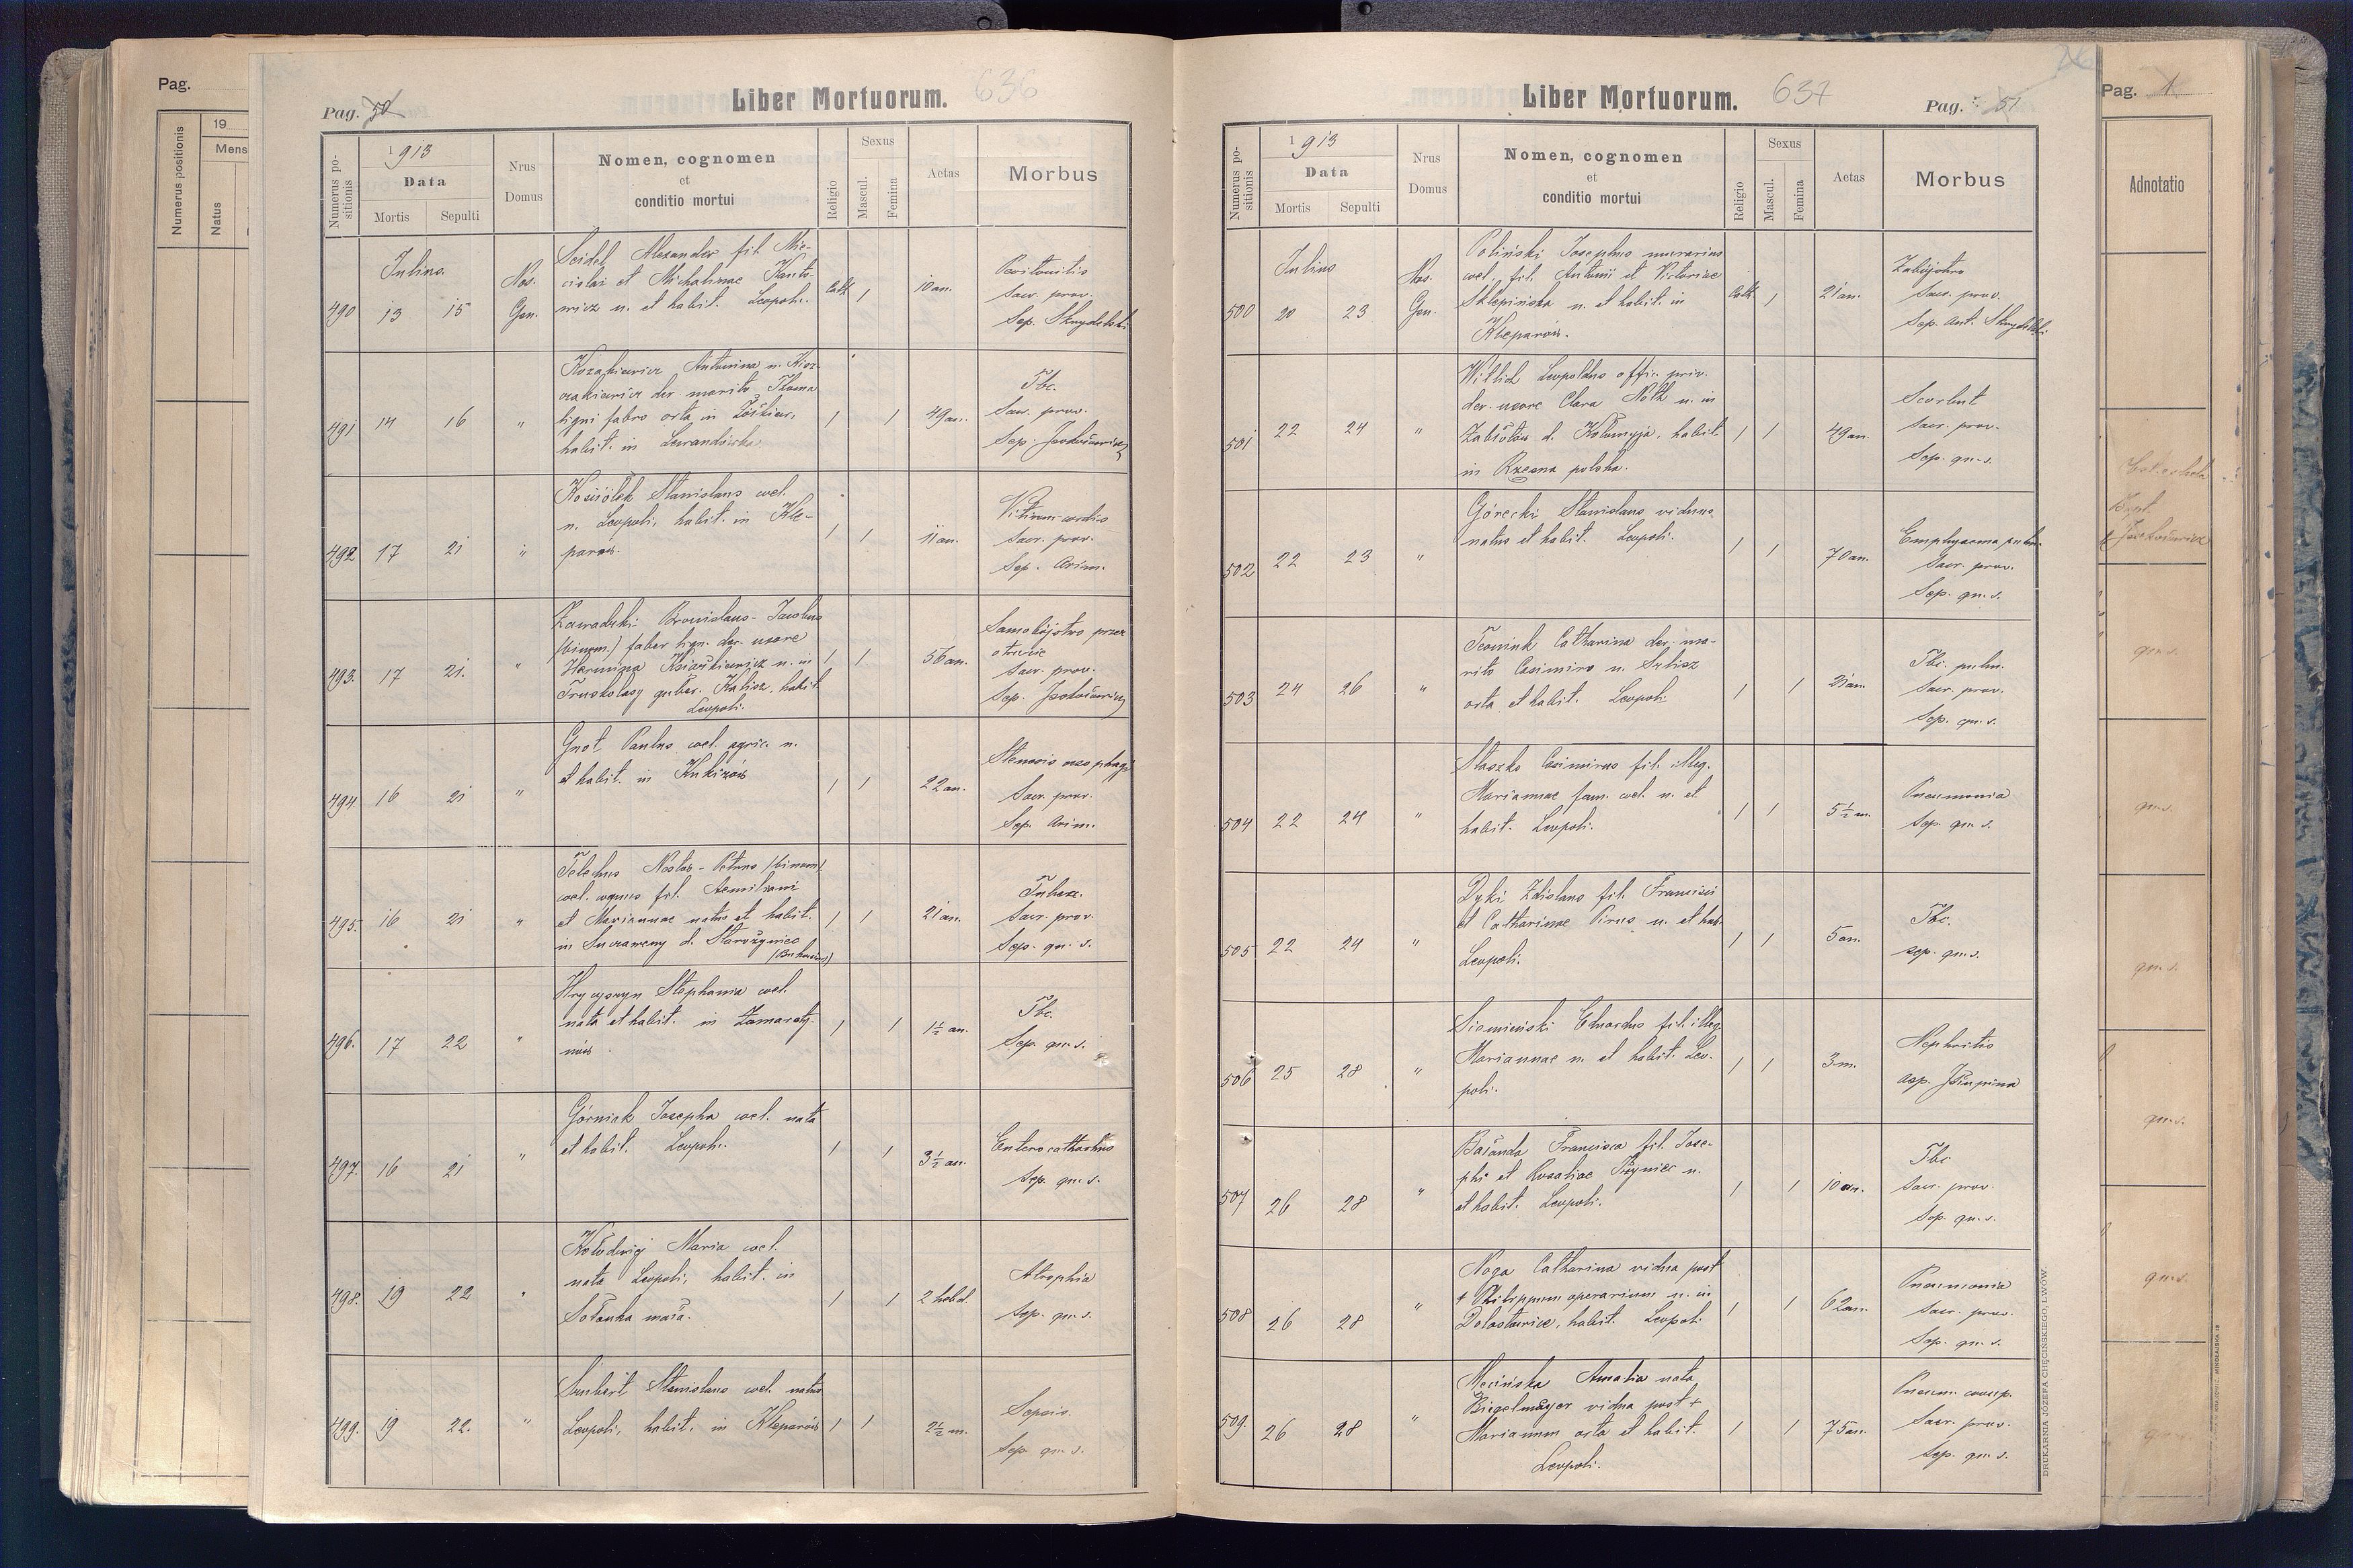 Pag.
Numerus positionis
19
Mens
Natus
Pag. 50
Liber Mortuorum.
636
Numerus positionis
1913
Data
Mortis
Sepulti
Nrus
Domus
Nomen, cognomen
et
conditio mortui
Religio
Sexus
Mascul.
Femina
Aetas
Morbus
Julius
490 13 15
Nos.
Gen.
Seidel Alexander fil. Mie-
cislai et Michalinae Kanto-
wicz n. et habit. Leopoli.
Cath. 1
10 an.
Peritonitis
Sacr. prov.
Sep. Skrydelski
491 14 16 "
Kozakiewicz Antonina n. Kosz-
der. marito Thoma
ligni fabro orta in Żółkiew,
habit. in Lewandówka
1 1
49 an.
Tbc.
Sacr. prov.
Sep.
492 17 21 "
Kosiołek Stanislaus cael.
n. Leopoli, habit. in Kle-
parów.
1 1
11 an.
Vitium cordis
Sacr. prov.
Sep. Arim.
493. 17 21. "
Zawadzki Bronislaus-Jacobus
(binom.) faber lign. der. uxore
Hermina Książkiewicz n. in
Truskolasy guber. Kalisz, habit.
Leopoli.
1 1
56 an.
Samobójstwo przez
otrucie
Sacr. prov.
Sep.
494 16 21 "
Gnot Paulus cael. agric. n.
et habit. in Kukizów
1 1
22 an.
Stenosis oesophagi
Sacr. prov.
Sep. Arim.
495. 16 21 "
Telechus Nestor-Petrus (binom)
cael. fil. Aemiliani
et Mariannae natus et habit.
in d. Storożynec
1 1
21 an.
Tuberc.
Sacr. prov.
Sep. qu. s.
496. 17 22 "
Hrycyszyn Stephania cael.
nata et habit. in Zamarsty-
nów
1 1
1½ an.
Tbc.
Sep. qu. s.
497. 16 21 "
Górniak Josepha cael. nata
et habit. Leopoli.
1 1
3½ an.
Enterocatharhus
Sep. qu. s.
498. 19 22 "
Kołodwij Maria cael.
nata Leopoli, habit. in
Sołonka mała.
1 1
2 hebd.
Atrophia
Sep. qu. s.
499. 19 22. "
Szubert Stanislaus cael. natus
Leopoli, habit. in Kleparów
1 1
2½ m.
Sepsis.
Sep. qu. s.
Liber Mortuorum.
637
Pag. 51
Numerus positionis
1913
Data
Mortis
Sepulti
Nrus
Domus
Nomen, cognomen
et
conditio mortui
Religio
Sexus
Mascul.
Femina
Aetas
Morbus
Julius
500 20 23
Nos.
Gen.
Poliński Josephus murarius
cael. fil. Antonii et Victoriae
Sklepińska n. et habit. in
Kleparów.
Cath. 1
21 an.
Zabójstwo
Sacr. prov.
Sep. Ant. Skrydelski
501 22 24 "
Willich Leopoldus offic. priv.
der. uxore Clara Nöth n. in
Zabłotów d. Kołomyja, habit.
in Rzesna polska.
1 1
49 an.
Scorbut
Sacr. prov.
Sep. qu. s.
502 22 23 "
Górecki Stanislaus viduus
natus et habit. Leopoli.
1 1
70 an.
Emphysema pulm.
Sacr. prov.
Sep. qu. s.
503 24 26 "
Catharina der. ma-
rito Casimiro n.
orta et habit. Leopoli
1 1
21 an.
Tbc. pulm.
Sacr. prov.
Sep. qu. s.
504 22 24 "
Staszko Casimirus fil. illeg.
Mariannae fam. cael. n. et
habit. Leopoli.
1 1
5½ m.
Pneumonia
Sep. qu. s.
505 22 24 "
Dyki Zdislaus fil. Francisci
et Catharinae Pirus n. et hab.
Leopoli.
1 1
5 an.
Tbc.
Sep. qu. s.
506 25 28 "
Siemieński Eduardus fil. illeg.
Mariannae n. et habit. Leo-
poli.
1 1
3 m.
Nephritis
Sep.
507 26 28 "
Bałanda Francisca fil. Jose-
phi et Rosaliae n.
et habit. Leopoli.
1 1
10 an.
Tbc
Sacr. prov.
Sep. qu. s.
508 26 28 "
Noga Catharina vidua post
+ Philippum operarium n. in
habit. Leopoli
1 1
62 an.
Pneumonia
Sacr. prov.
Sep. qu. s.
509. 26 28 "
Męcińska Amalia nata
Biegelmayer vidua post +
Marianum orta et habit.
Leopoli.
1 1
75 an.
Pneum. crup.
Sacr. prov.
Sep. qu. s.
DRUKARNIA JÓZEFA CHĘCIŃSKIEGO, LWÓW.
Pag. 1
Adnotatio
qu. s.
qu. s.
qu. s.
qu. s.
qu. s.